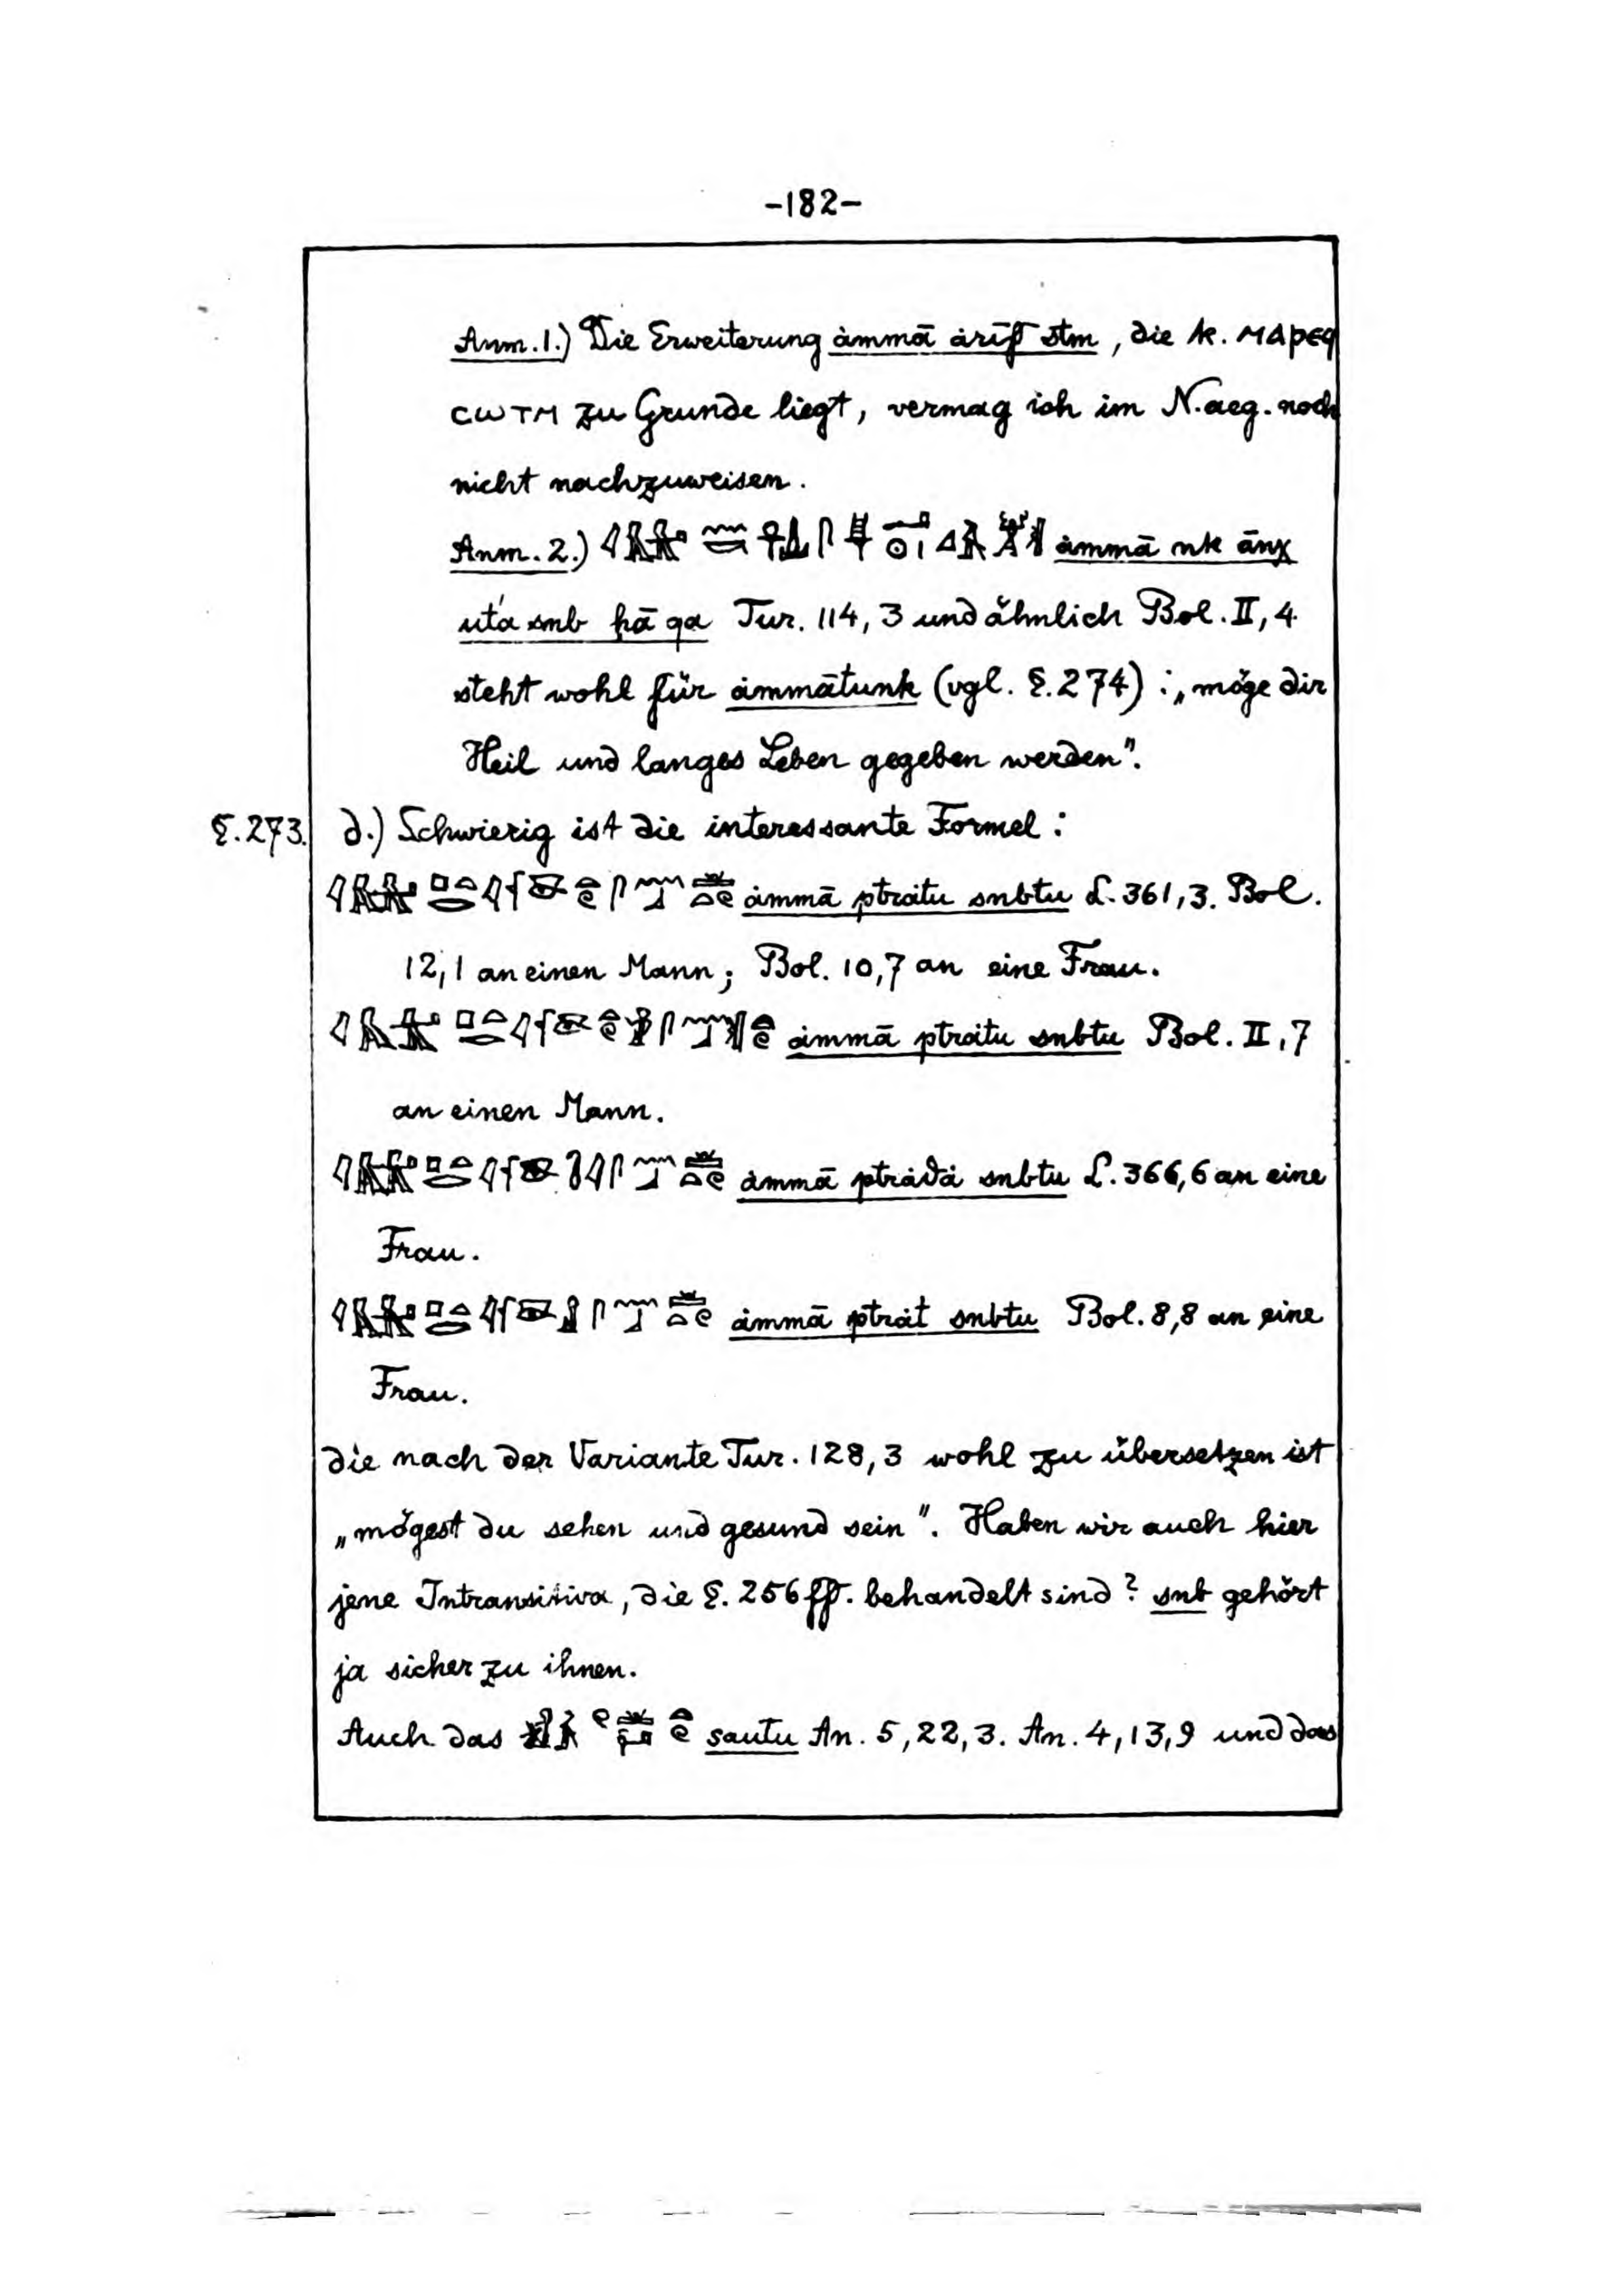 -182-
Anm. 1.) Die Erweiterung ȧmmā ȧrif stm, die k. ⲙⲁⲣⲉϥ
ⲥⲱⲧⲙ zu Grunde liegt, vermag ich im N. aeg. noch
nicht nachzuweisen.
Anm. 2.) ȧmmā nk ānχ
ut'a snb ḥā qa Tur. 114, 3 und ähnlich Bol. II, 4
steht wohl für ȧmmātunk (vgl. §. 274) : „möge dir
Heil und langes Leben gegeben werden".
§. 273. d.) Schwierig ist die interessante Formel :
ȧmmā ptrȧtu snbtu L. 361, 3. Bol.
12, 1 an einen Mann; Bol. 10, 7 an eine Frau.
ȧmmā ptrȧtu snbtu Bol. II, 7
an einen Mann.
ȧmmā ptrȧdȧ snbtu L. 366, 6 an eine
Frau.
ȧmmā ptrȧt snbtu Bol. 8, 8 an eine
Frau.
die nach der Variante Tur. 128, 3 wohl zu übersetzen ist
„mögest du sehen und gesund sein". Haben wir auch hier
jene Intransitiva, die §. 256 ff. behandelt sind? snb gehört
ja sicher zu ihnen.
Auch das sautu An. 5, 22, 3. An. 4, 13, 9 und das